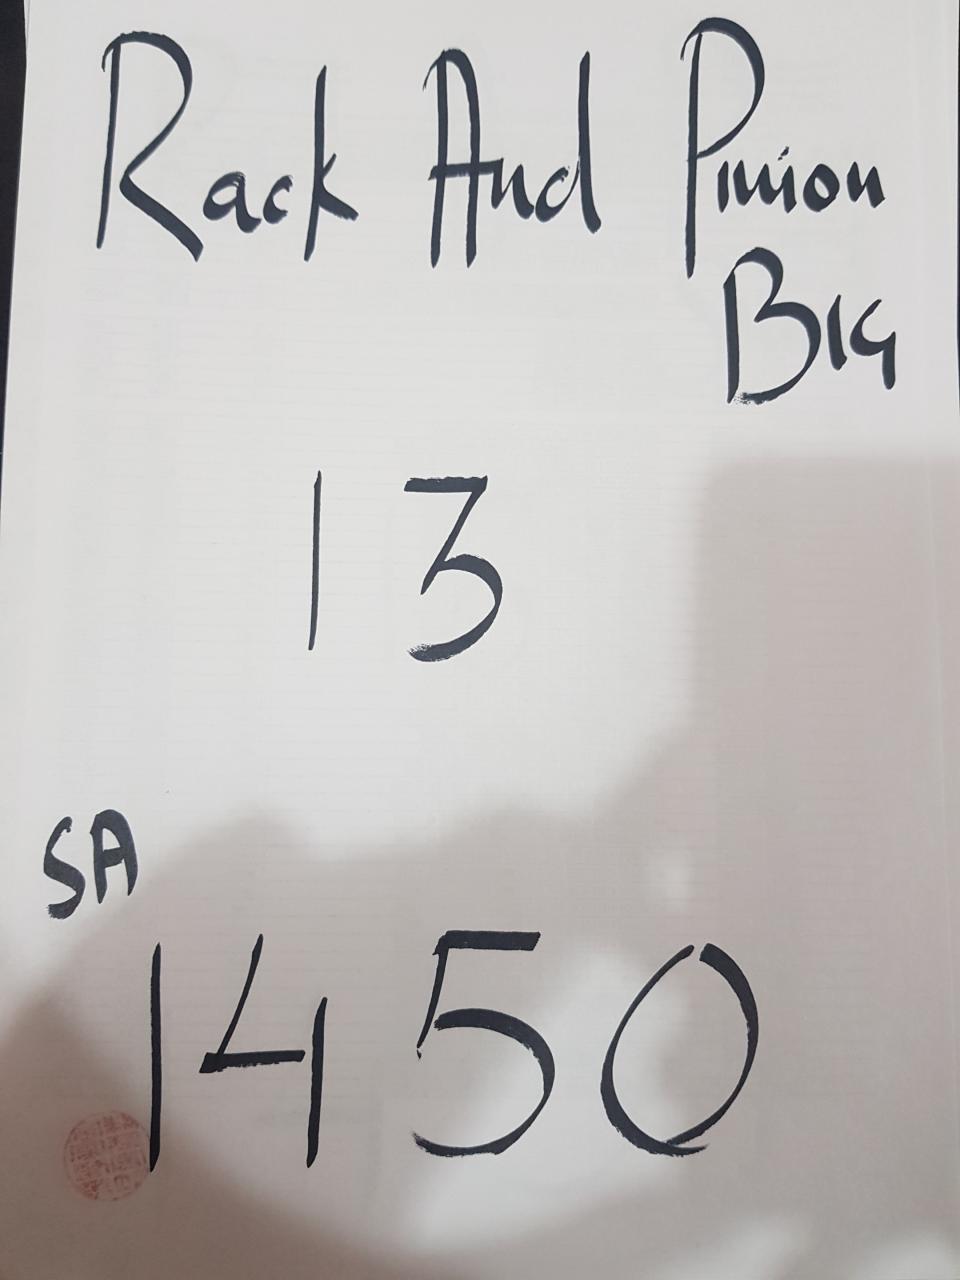 Rack And Pinion
BIG
13
SA
1450